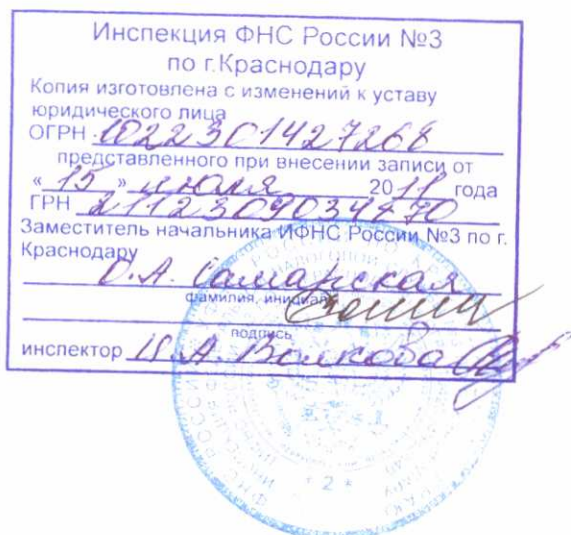 Инспекция ФНС России №3
по г.Краснодару
Копия изготовлена с изменений к уставу
юридического лица
ОГРН 1022301427268
представленного при внесении записи от
« 15 » июля 2011 года
ГРН 2112309034470
Заместитель начальника ИФНС России №3 по г.
Краснодару
О.А. Самарская
фамилия, инициалы
подпись
инспектор А. Волкова
* 2 *